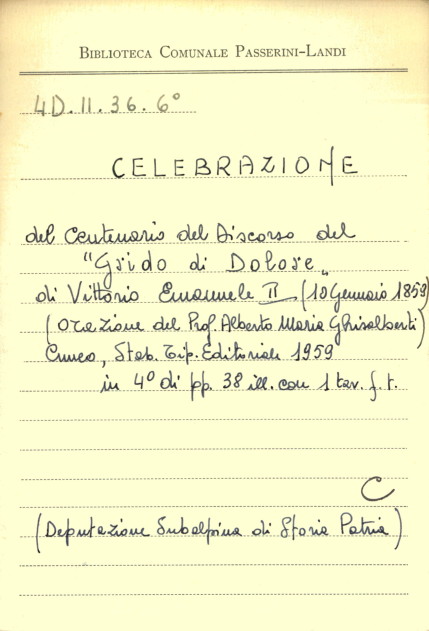 BIBLIOTECA COMUNALE PASSERINI-LANDI
4D.II.36.6°
CELEBRAZIONE
del Centenario del Discorso del
"Grido di Dolore„
di Vittorio Emanuele II (10 Gennaio 1859
(Orazione del Prof. Alberto Maria Ghisalberti)
Cuneo, Stab. Tip. Editoriale 1959
in 4° di pp. 38 ill. con 1 tav. f. t.
C
(Deputazione Subalpina di Storia Patria)